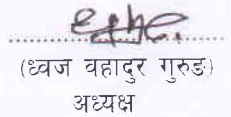 (ध्वज वहादुर गुरुङ)
अध्यक्ष